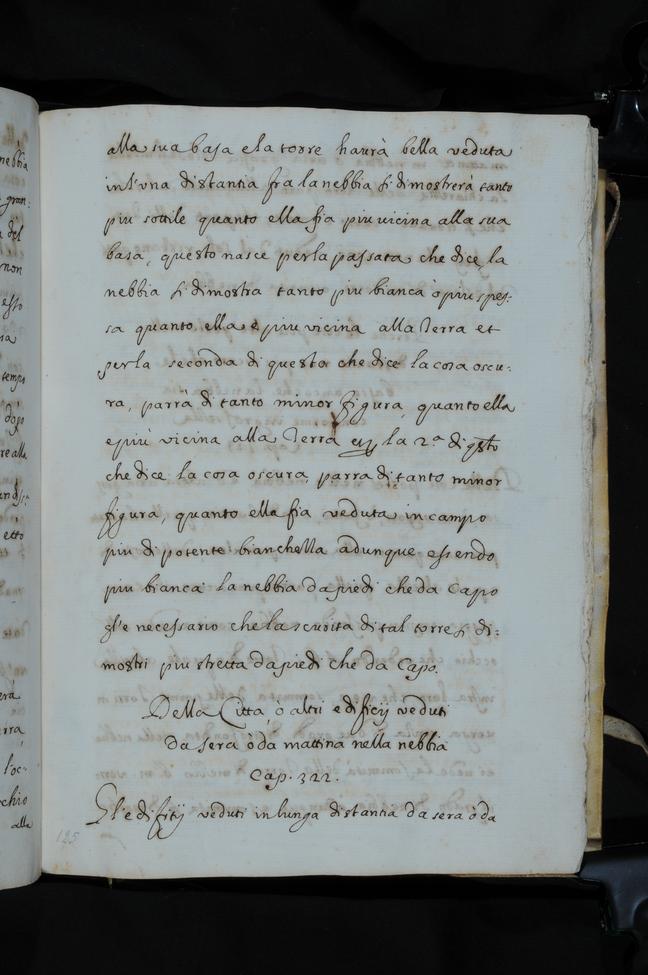 alla sua basa e la torre haurà bella veduta
in l'una distantia fra la nebbia si dimostrerà tanto
piu sottile quanto ella sia piu vicina alla sua
basa, questo nasce per la passata che dice, la
nebbia si dimostra tanto piu bianca ò piu spes:
sa quanto ella è piu vicina alla Terra et
per la seconda di questo che dice la cosa oscu:
ra, parrà di tanto minor figura quanto ella
e più vicina alla Terra la 2ª di qsto
che dice la cosa oscura, parra di tanto minor
figura, quanto ella fia veduta in campo
piu di potente bianchella adunque essendo
piu bianca la nebbia da piedi che da Capo
gl'e necessario che la scurita di tal torre si di:
mostri piu stretta da piedi che da Capo.
Della Citta, ò altri edificij veduti
da sera ò da mattina nella nebbia
Cap. 322.
Gl'edifitij veduti in lunga distantia da sera ò da
nebbia
gran:
del
non
esso
tempo
re alla
etto
erà
erra
l'oc:
cchio
alla
125